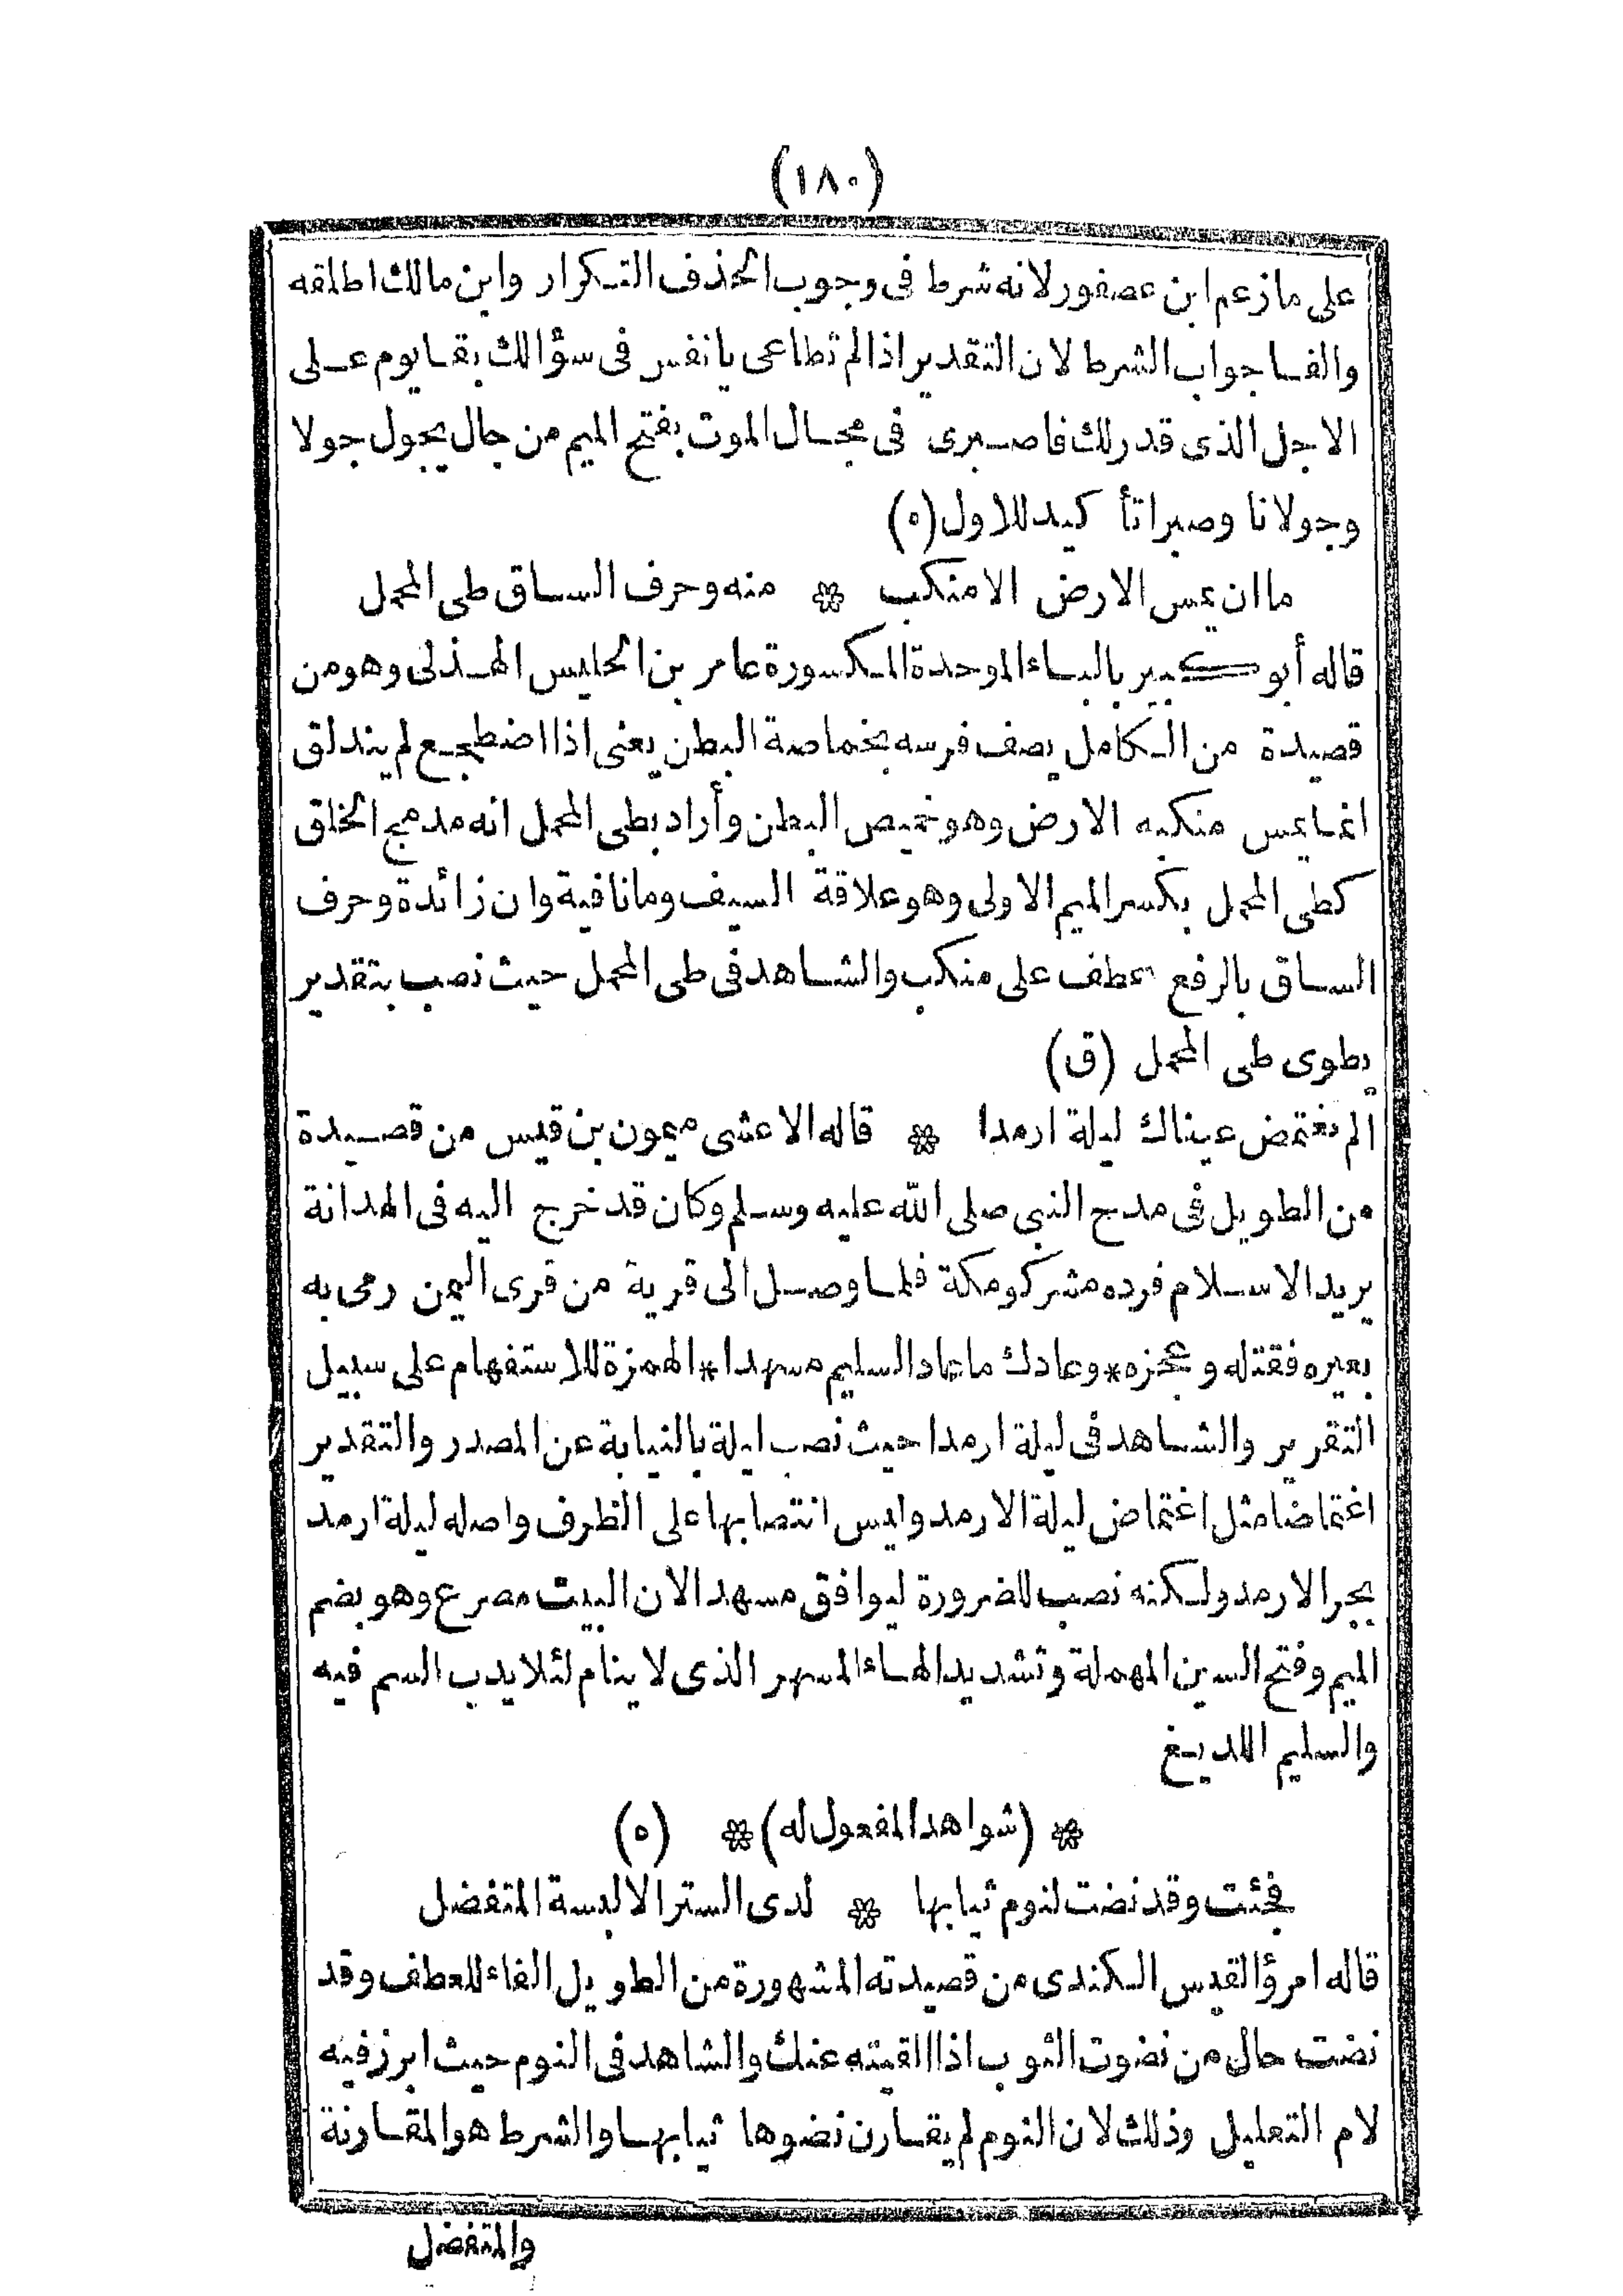 (١٨٠)
على ما زعم ابن عصفور لانه شرط فى وجوب الحذف التكرار وابن مالك اطلقه
والفا جواب الشرط لان التقدير اذا لم تطاعى يا نفس فى سؤالك بقا يوم على
الاجل الذى قدر لك فاصبرى فى مجال الموت بفتح الميم من جال يجول جولا
وجولانا وصبرا تأكيد للاول (ه)
ما ان يمس الارض الا منكب * منه وحرف الساق طى المحمل
قاله أبو كبير بالباء الموحدة المكسورة عامر بن الحليس الهذلى وهو من
قصيدة من الكامل يصف فرسه بخماصة البطن يعنى اذا اضطجع لم يندلق
انما يمس منكبه الارض وهو خميص البطن وأراد بطى المحمل انه مدمج الخلق
كطى المحمل بكسر الميم الاولى وهو علاقة السيف وما نافية وان زائدة وحرف
الساق بالرفع عطف على منكب والشاهد فى طى المحمل حيث نصب بتقدير
يطوى طى المحمل (ق)
الم تغتمض عيناك ليلة ارمدا * قاله الاعشى ميمون بن قيس من قصيدة
من الطويل فى مدح النبى صلى الله عليه وسلم وكان قد خرج اليه فى الهدانة
يريد الاسلام فرده مشركو مكة فلما وصل الى قرية من قرى اليمن رمى به
بعيره فقتله وعجزه * وعادك ما عاد السليم مسهدا * الهمزة للاستفهام على سبيل
التقرير والشاهد فى ليلة ارمدا حيث نصب ليلة بالنيابة عن المصدر والتقدير
اغتماضا مثل اغتماض ليلة الارمد وليس انتصابها على الظرف واصله ليلة ارمد
بجر الارمد ولكنه نصب للضرورة ليوافق مسهدا لان البيت مصرع وهو بضم
الميم وفتح السين المهملة وتشديد الهاء المسهر الذى لا ينام لئلا يدب السم فيه
والسليم اللديغ
* (شواهد المفعول له) * (ه)
فجئت وقد نضت لنوم ثيابها * لدى الستر الا لبسة المتفضل
قاله امرؤ القيس الكندى من قصيدته المشهورة من الطويل الفاء للعطف وقد
نضت حال من نضوت الثوب اذا القيته عنك والشاهد فى النوم حيث ابرز فيه
لام التعليل وذلك لان النوم لم يقارن نضوها ثيابها والشرط هو المقارنة
والمتفضل